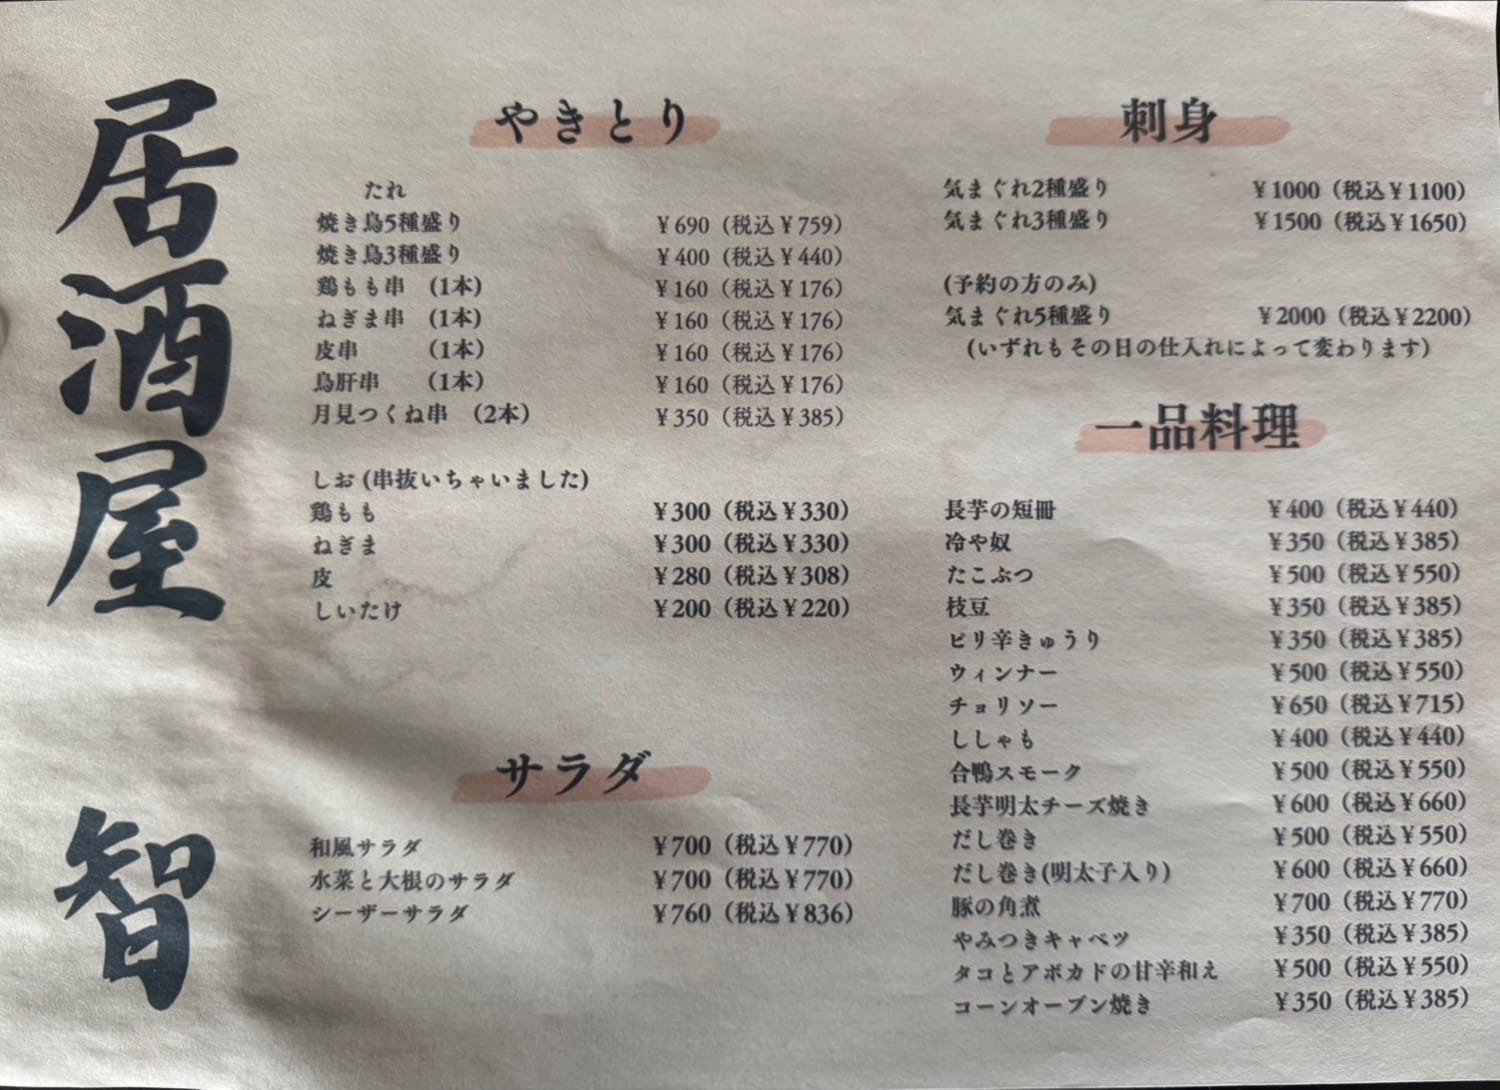 居酒屋 智
やきとり
たれ
焼き鳥5種盛り ¥690（税込¥759）
焼き鳥3種盛り ¥400（税込¥440）
鶏もも串 (1本) ¥160（税込¥176）
ねぎま串 (1本) ¥160（税込¥176）
皮串 (1本) ¥160（税込¥176）
鳥肝串 (1本) ¥160（税込¥176）
月見つくね串 (2本) ¥350（税込¥385）
しお (串抜いちゃいました)
鶏もも ¥300（税込¥330）
ねぎま ¥300（税込¥330）
皮 ¥280（税込¥308）
しいたけ ¥200（税込¥220）
サラダ
和風サラダ ¥700（税込¥770）
水菜と大根のサラダ ¥700（税込¥770）
シーザーサラダ ¥760（税込¥836）
刺身
気まぐれ2種盛り ¥1000（税込¥1100）
気まぐれ3種盛り ¥1500（税込¥1650）
(予約の方のみ)
気まぐれ5種盛り ¥2000（税込¥2200）
（いずれもその日の仕入れによって変わります）
一品料理
長芋の短冊 ¥400（税込¥440）
冷や奴 ¥350（税込¥385）
たこぶつ ¥500（税込¥550）
枝豆 ¥350（税込¥385）
ピリ辛きゅうり ¥350（税込¥385）
ウィンナー ¥500（税込¥550）
チョリソー ¥650（税込¥715）
ししゃも ¥400（税込¥440）
合鴨スモーク ¥500（税込¥550）
長芋明太チーズ焼き ¥600（税込¥660）
だし巻き ¥500（税込¥550）
だし巻き(明太子入り) ¥600（税込¥660）
豚の角煮 ¥700（税込¥770）
やみつきキャベツ ¥350（税込¥385）
タコとアボカドの甘辛和え ¥500（税込¥550）
コーンオーブン焼き ¥350（税込¥385）